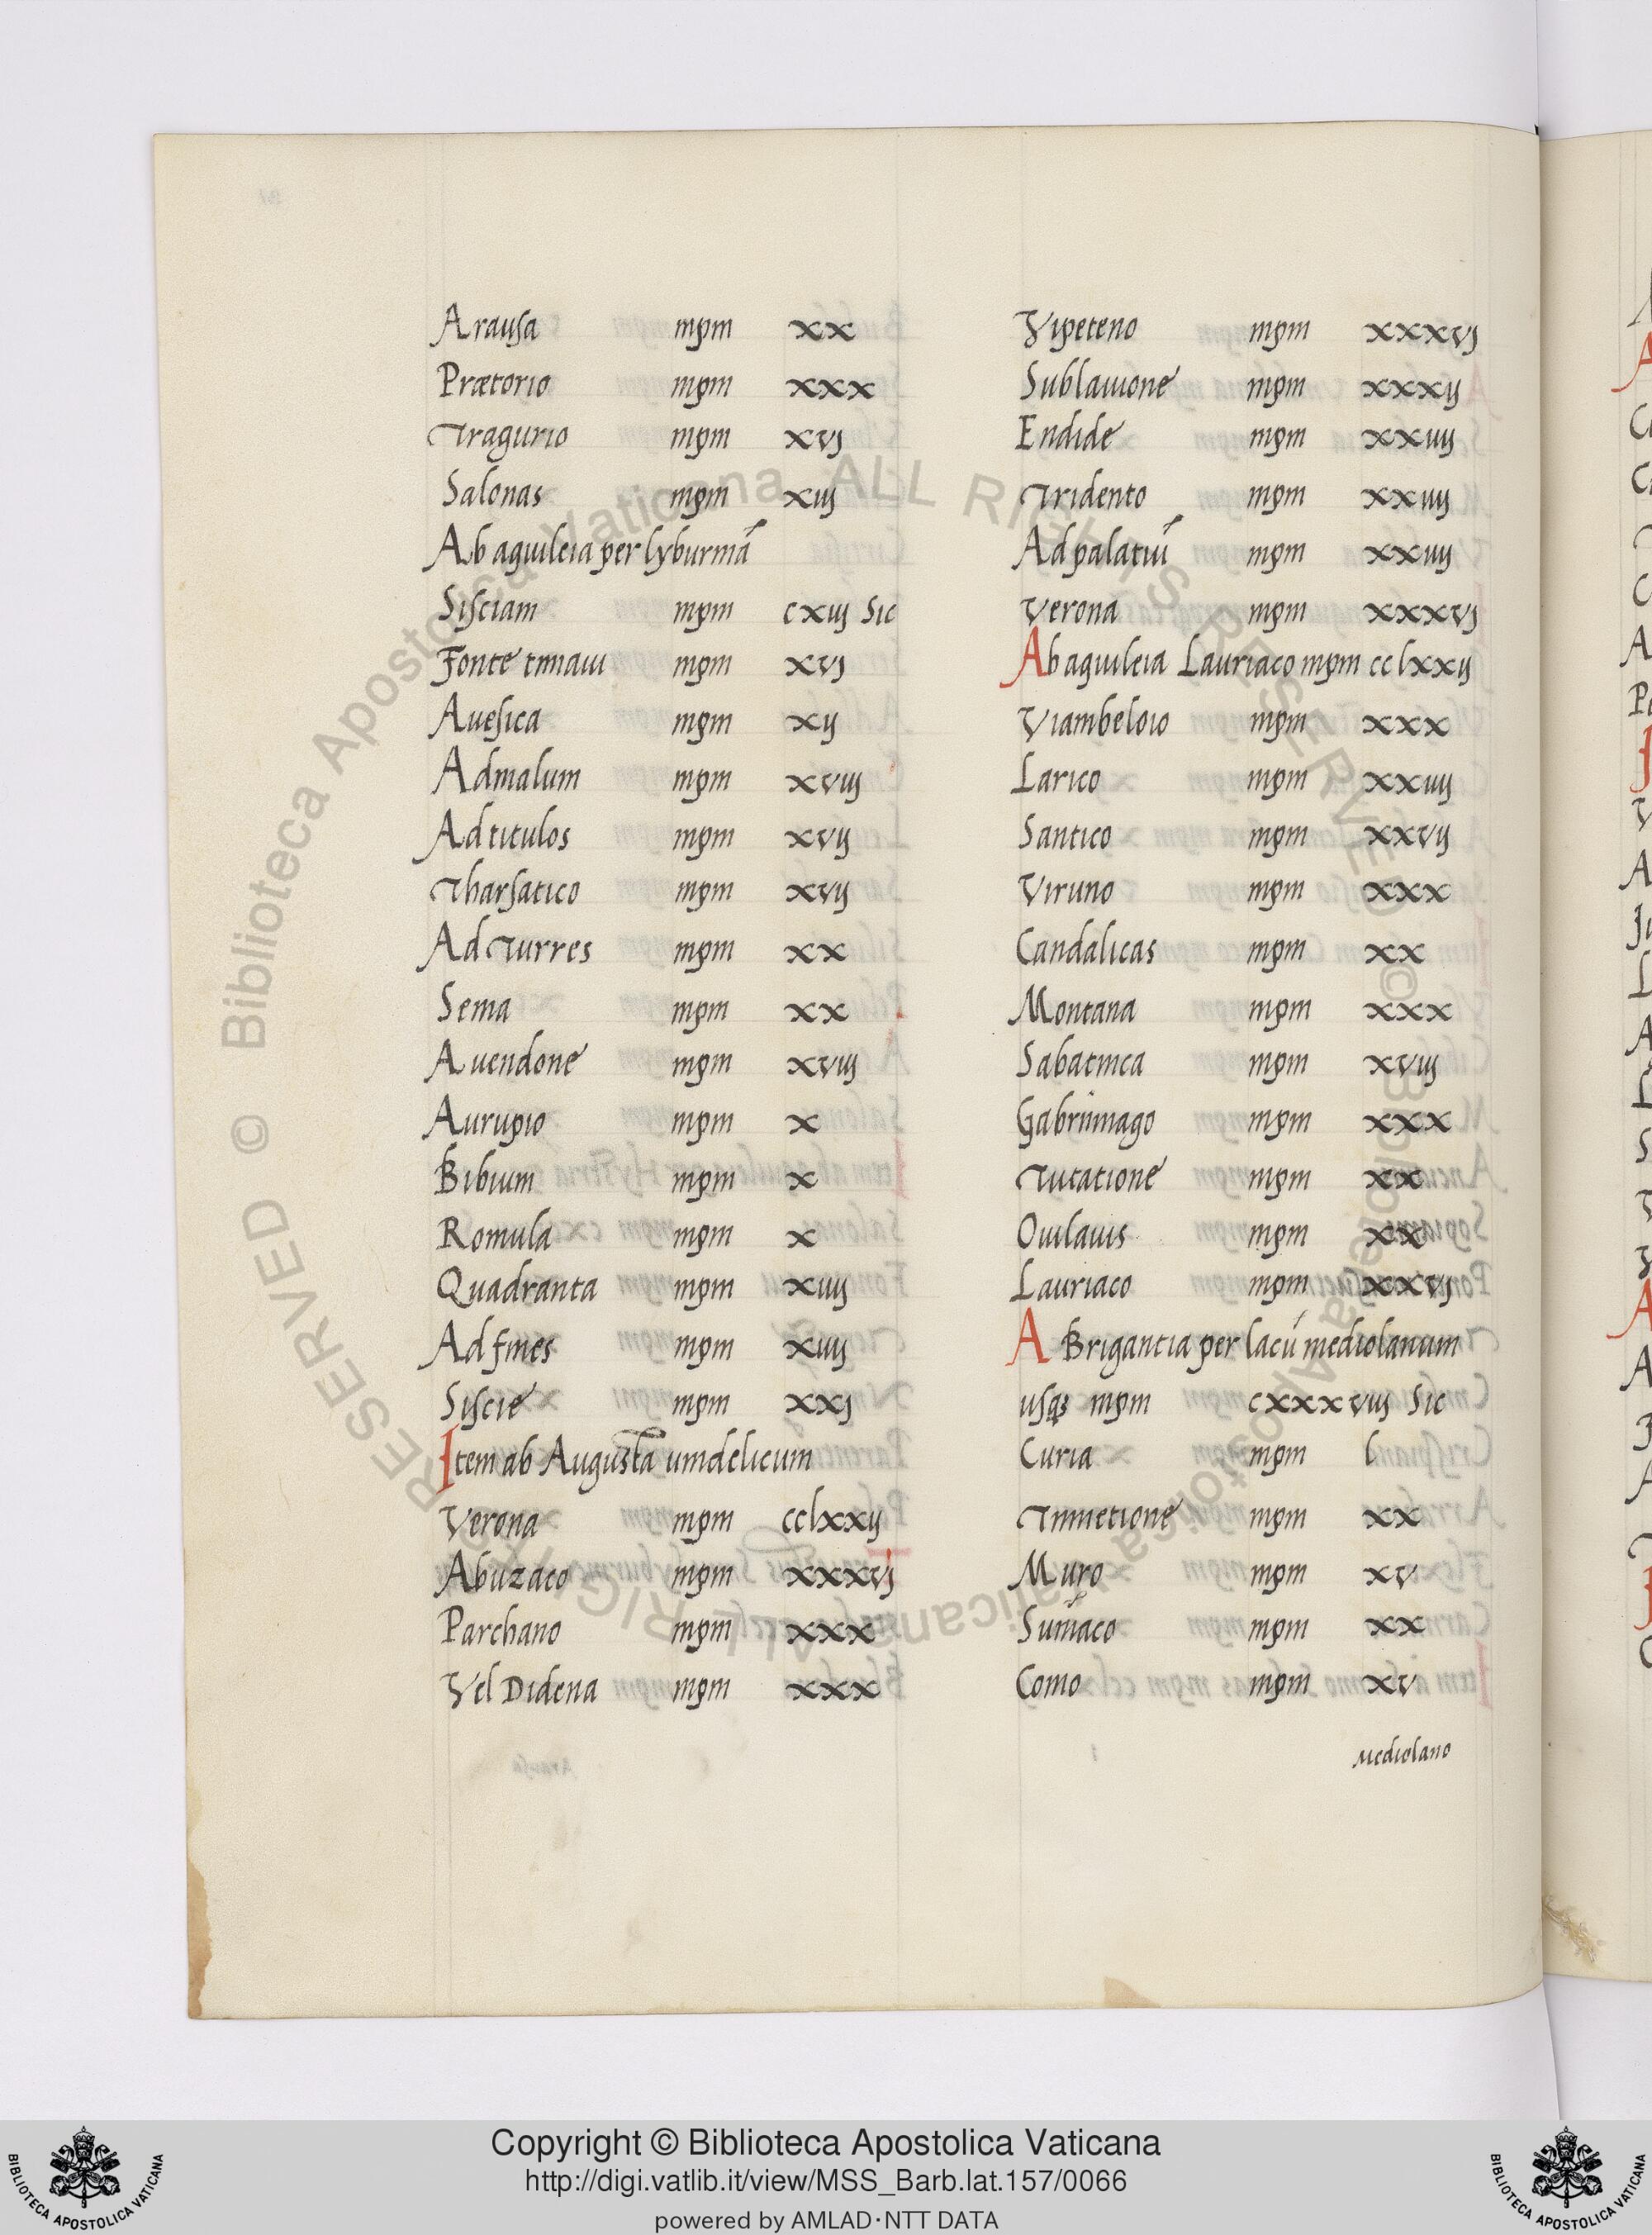 Arausa mpm xx
Prætorio mpm xxx
Tragurio mpm xvj
Salonas mpm xiij
Ab aquileia per lyburniā
Sisciam mpm cxiij Sic
Fonte timaui mpm xvj
Auesica mpm xij
Admalum mpm xviij
Ad titulos mpm xvij
Tharsatico mpm xvij
Ad Turres mpm xx
Senia mpm xx
Auendone mpm xviij
Aurupio mpm x
Bibium mpm x
Romula mpm x
Quadranta mpm xiiij
Ad fines mpm xiiij
Siscie mpm xxj
Item ab Augusta uindelicum
Verona mpm cclxxij
Abuzaco mpm xxxvj
Parthano mpm xxx
Vel Didena mpm xxx
Vipeteno mpm xxxvj
Sublauione mpm xxxij
Endide mpm xxiiij
Tridento mpm xxiiij
Ad palatiū mpm xxiiij
Verona mpm xxxvj
Ab aquileia Lauriaco mpm cclxxij
Viambeloio mpm xxx
Larico mpm xxiiij
Santico mpm xxvij
Viruno mpm xxx
Candalicas mpm xx
Montana mpm xxx
Sabatinca mpm xviij
Gabrumago mpm xxx
Tutatione mpm xx
Ouilauis mpm xx
Lauriaco mpm xxvj
A Brigantia per lacū mediolanum
usq; mpm cxxxviij Sic
Curia mpm l
Tinnetione mpm xx
Muro mpm xv
Sumaco mpm xx
Como mpm xv
Mediolano
© Biblioteca Apostolica Vaticana ALL RIGHTS RESERVED © Biblioteca Apostolica Vaticana ALL RIGHTS RESERVED
Copyright © Biblioteca Apostolica Vaticana
http://digi.vatlib.it/view/MSS_Barb.lat.157/0066
powered by AMLAD·NTT DATA
BIBLIOTECA APOSTOLICA VATICANA
BIBLIOTECA APOSTOLICA VATICANA